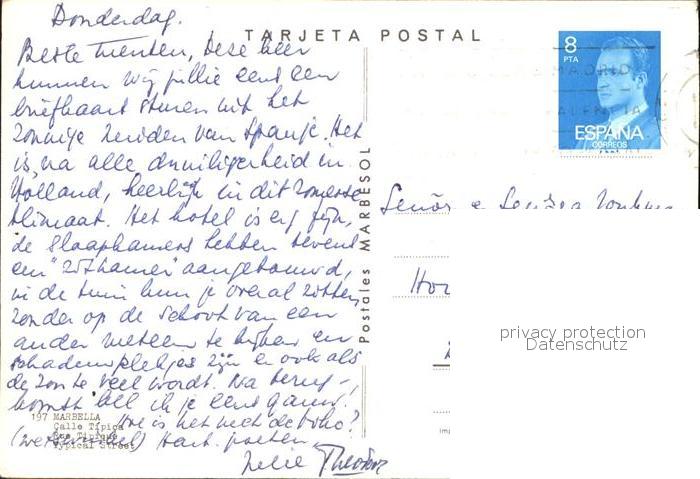 Donderdag.
TARJETA POSTAL
Beste Menten, Deze keer
kunnen wij jullie eens een
briefkaart sturen uit het
zonnige zuiden van Spanje. Het
is, na alle druiligerheid in
Holland, heerlijk in dit zomerse
klimaat. Het hotel is erg fijn,
de slaapkamers hebben tevens
een "zitkamer" aangebouwd,
in de tuin kun je overal zitten
zonder op de schoot van een
ander meteen te kijken en
schaduwplekjes zijn er ook als
de zon te veel wordt. Na terug-
komst bel ik je eens gauw.
Hoe is het met de
Hart. groeten
8
PTA
MADRID
ESPAÑA
CORREOS
Postales MARBESOL
Señor e
Hor
privacy protection
Datenschutz
197 MARBELLA
Calle Típica
Rue Tipique
Typical Street